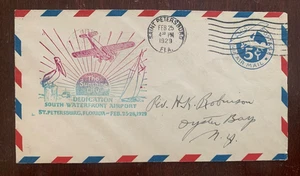 SAINT PETERSBURG
FEB 25
4 PM
1929
FLA.
5¢
AIR MAIL
THE
DEDICATION
SOUTH WATERFRONT AIRPORT
ST. PETERSBURG, FLORIDA
Rev. H.K. Robinson
Oyster Bay
N.Y.